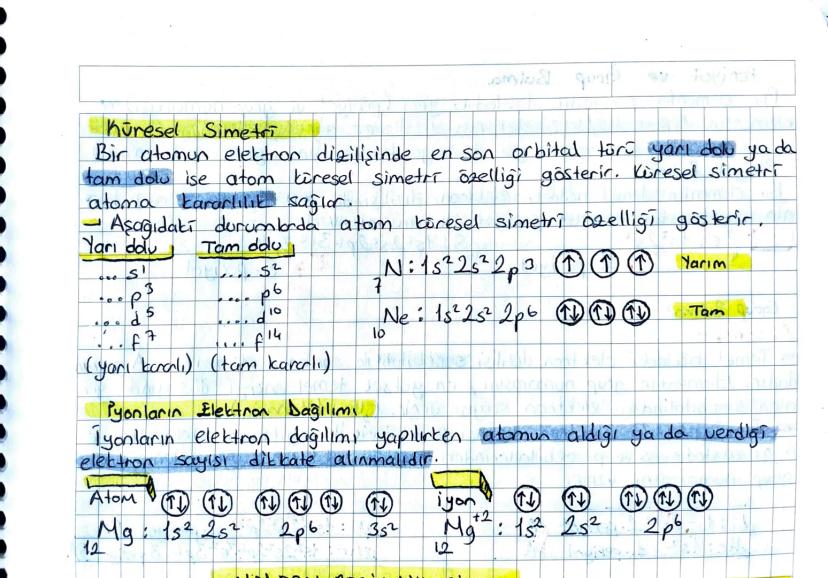 Küresel Simetri
Bir atomun elektron dizilişinde en son orbital türü yarı dolu ya da
tam dolu ise atom küresel simetri özelliği gösterir. Küresel simetri
atoma kararlılık sağlar.
→ Aşağıdaki durumlarda atom küresel simetri özelliği gösterir.
Yarı dolu Tam dolu
... s¹ .... s²
... p³ .... p⁶
... d⁵ .... d¹⁰
... f⁷ .... f¹⁴
(yarı kararlı) (tam kararlı)
₇N: 1s² 2s² 2p³ ↑ ↑ ↑ Yarım
₁₀Ne: 1s² 2s² 2p⁶ ↑↓ ↑↓ ↑↓ Tam
İyonların Elektron Dağılımı
İyonların elektron dağılımı yapılırken atomun aldığı ya da verdiği
elektron sayısı dikkate alınmalıdır.
Atom ↑↓ ↑↓ ↑↓ ↑↓ ↑↓ ↑↓
₁₂Mg: 1s² 2s² 2p⁶ 3s²
iyon ↑↓ ↑↓ ↑↓ ↑↓ ↑↓
₁₂Mg⁺²: 1s² 2s² 2p⁶